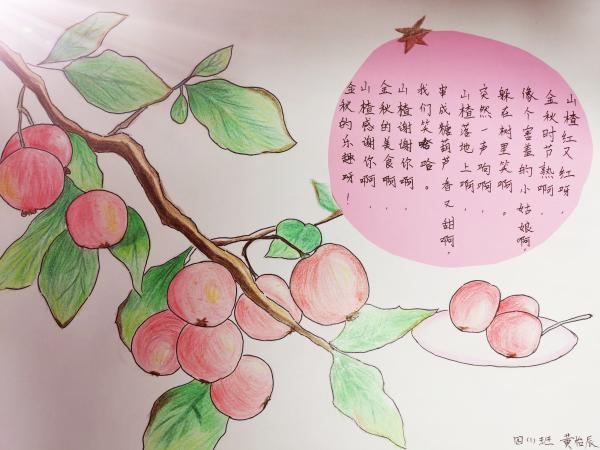 山楂红又红呀，
金秋时节熟啊，
像个害羞的小姑娘啊，
躲在树里笑啊。
突然一声响啊，
山楂落地上啊，
串成糖葫芦香又甜啊，
我们笑哈哈。
山楂谢谢你啊，
金秋的美食啊，
山楂感谢你啊，
金秋的乐趣呀！
四(1)班 黄怡辰